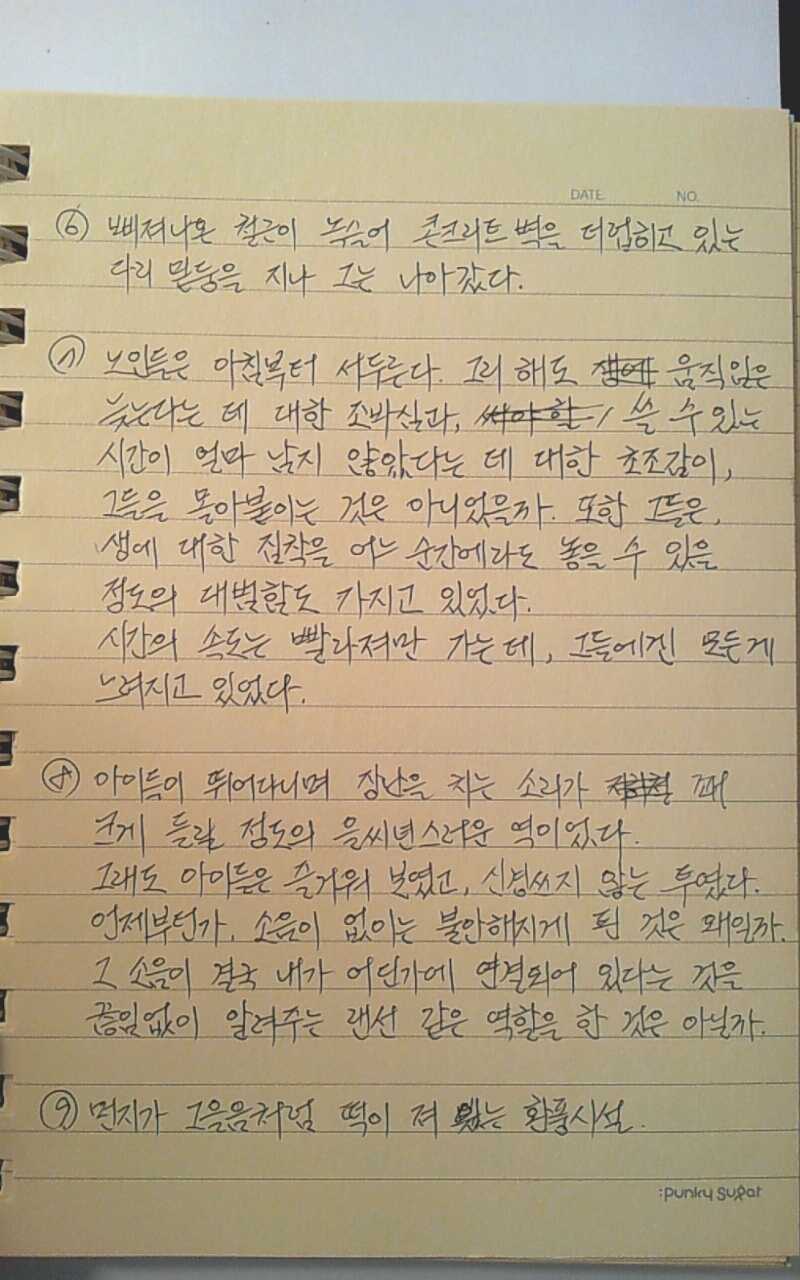 DATE. NO.
⑥ 삐져나온 철근이 녹슬어 콘크리트 벽을 더럽히고 있는
다리 밑둥을 지나 그는 나아갔다.
⑦ 노인들은 아침부터 서두른다. 그리 해도 움직임은
늦는다는 데 대한 조바심과, 쓸 수 있는
시간이 얼마 남지 않았다는 데 대한 초조감이,
그들을 몰아붙이는 것은 아니었을까. 또한 그들은,
생에 대한 집착을 어느 순간에라도 놓을 수 있을
정도의 대범함도 가지고 있었다.
시간의 속도는 빨라져만 가는데, 그들에겐 모든게
느려지고 있었다.
⑧ 아이들이 뛰어다니며 장난을 치는 소리가 꽤
크게 들릴 정도의 을씨년스러운 역이었다.
그래도 아이들은 즐거워 보였고, 신경쓰지 않는 투였다.
언제부턴가, 소음이 없이는 불안해지게 된 것은 왜일까.
그 소음이 결국 내가 어딘가에 연결되어 있다는 것을
끊임없이 알려주는 랜선 같은 역할을 한 것은 아닐까.
⑨ 먼지가 그을음처럼 떡이 져 있는 환풍시설.
:punky sugar